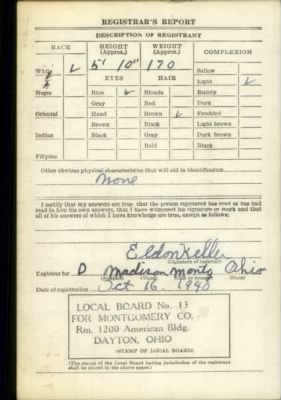 REGISTRAR'S REPORT
DESCRIPTION OF REGISTRANT
RACE
HEIGHT (Approx.)
WEIGHT (Approx.)
COMPLEXION
White ✓
5' 10"
170
Sallow
EYES
HAIR
Light ✓
Negro
Blue ✓
Blonde
Ruddy
Gray
Red
Dark
Oriental
Hazel
Brown ✓
Freckled
Brown
Black
Light brown
Indian
Black
Gray
Dark brown
Bald
Black
Filipino
Other obvious physical characteristics that will aid in identification
None
I certify that my answers are true; that the person registered has read or has had
read to him his own answers; that I have witnessed his signature or mark and that
all of his answers of which I have knowledge are true, except as follows:
Eldon Keller
(Signature of registrar)
Registrar for D Madison Montg Ohio
Date of registration Oct 16 1940
LOCAL BOARD No. 13
FOR MONTGOMERY CO.
Rm. 1200 American Bldg.
DAYTON, OHIO
(STAMP OF LOCAL BOARD)
(The stamp of the Local Board having jurisdiction of the registrant
shall be placed in the above space.)